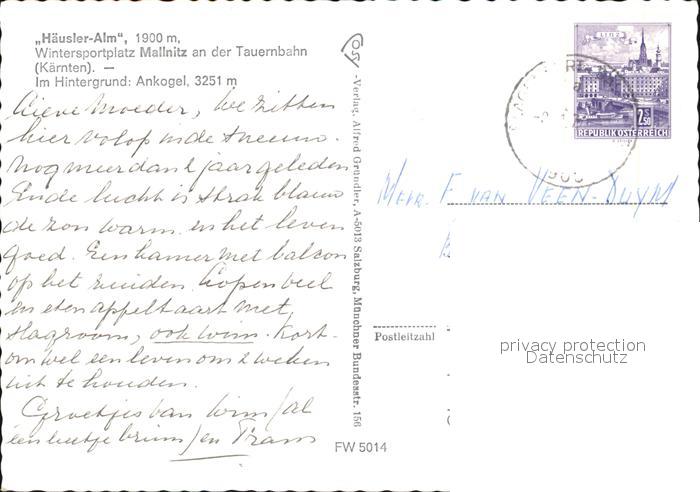 „Häusler-Alm“, 1900 m,
Wintersportplatz Mallnitz an der Tauernbahn
(Kärnten). —
Im Hintergrund: Ankogel, 3251 m
Lieve Moeder, we zitten
hier volop in de sneeuw.
Nog meer dan 2 jaar geleden
En de lucht is strak blauw
de zon warm en het leven
goed. Een kamer met balcon
op het zuiden. Lopen veel
en eten appeltaart met
slagroom, ook Wim. Kort-
om wel een leven om 2 weken
uit te houden.
Groetjes van Wim (al
een beetje bruin) en Frans
OS
-Verlag, Alfred Gründler, A-5013 Salzburg, Münchner Bundesstr. 156
FW 5014
LINZ
2.50
REPUBLIK ÖSTERREICH
Mevr. F van Veen-Duym
Postleitzahl
privacy protection
Datenschutz